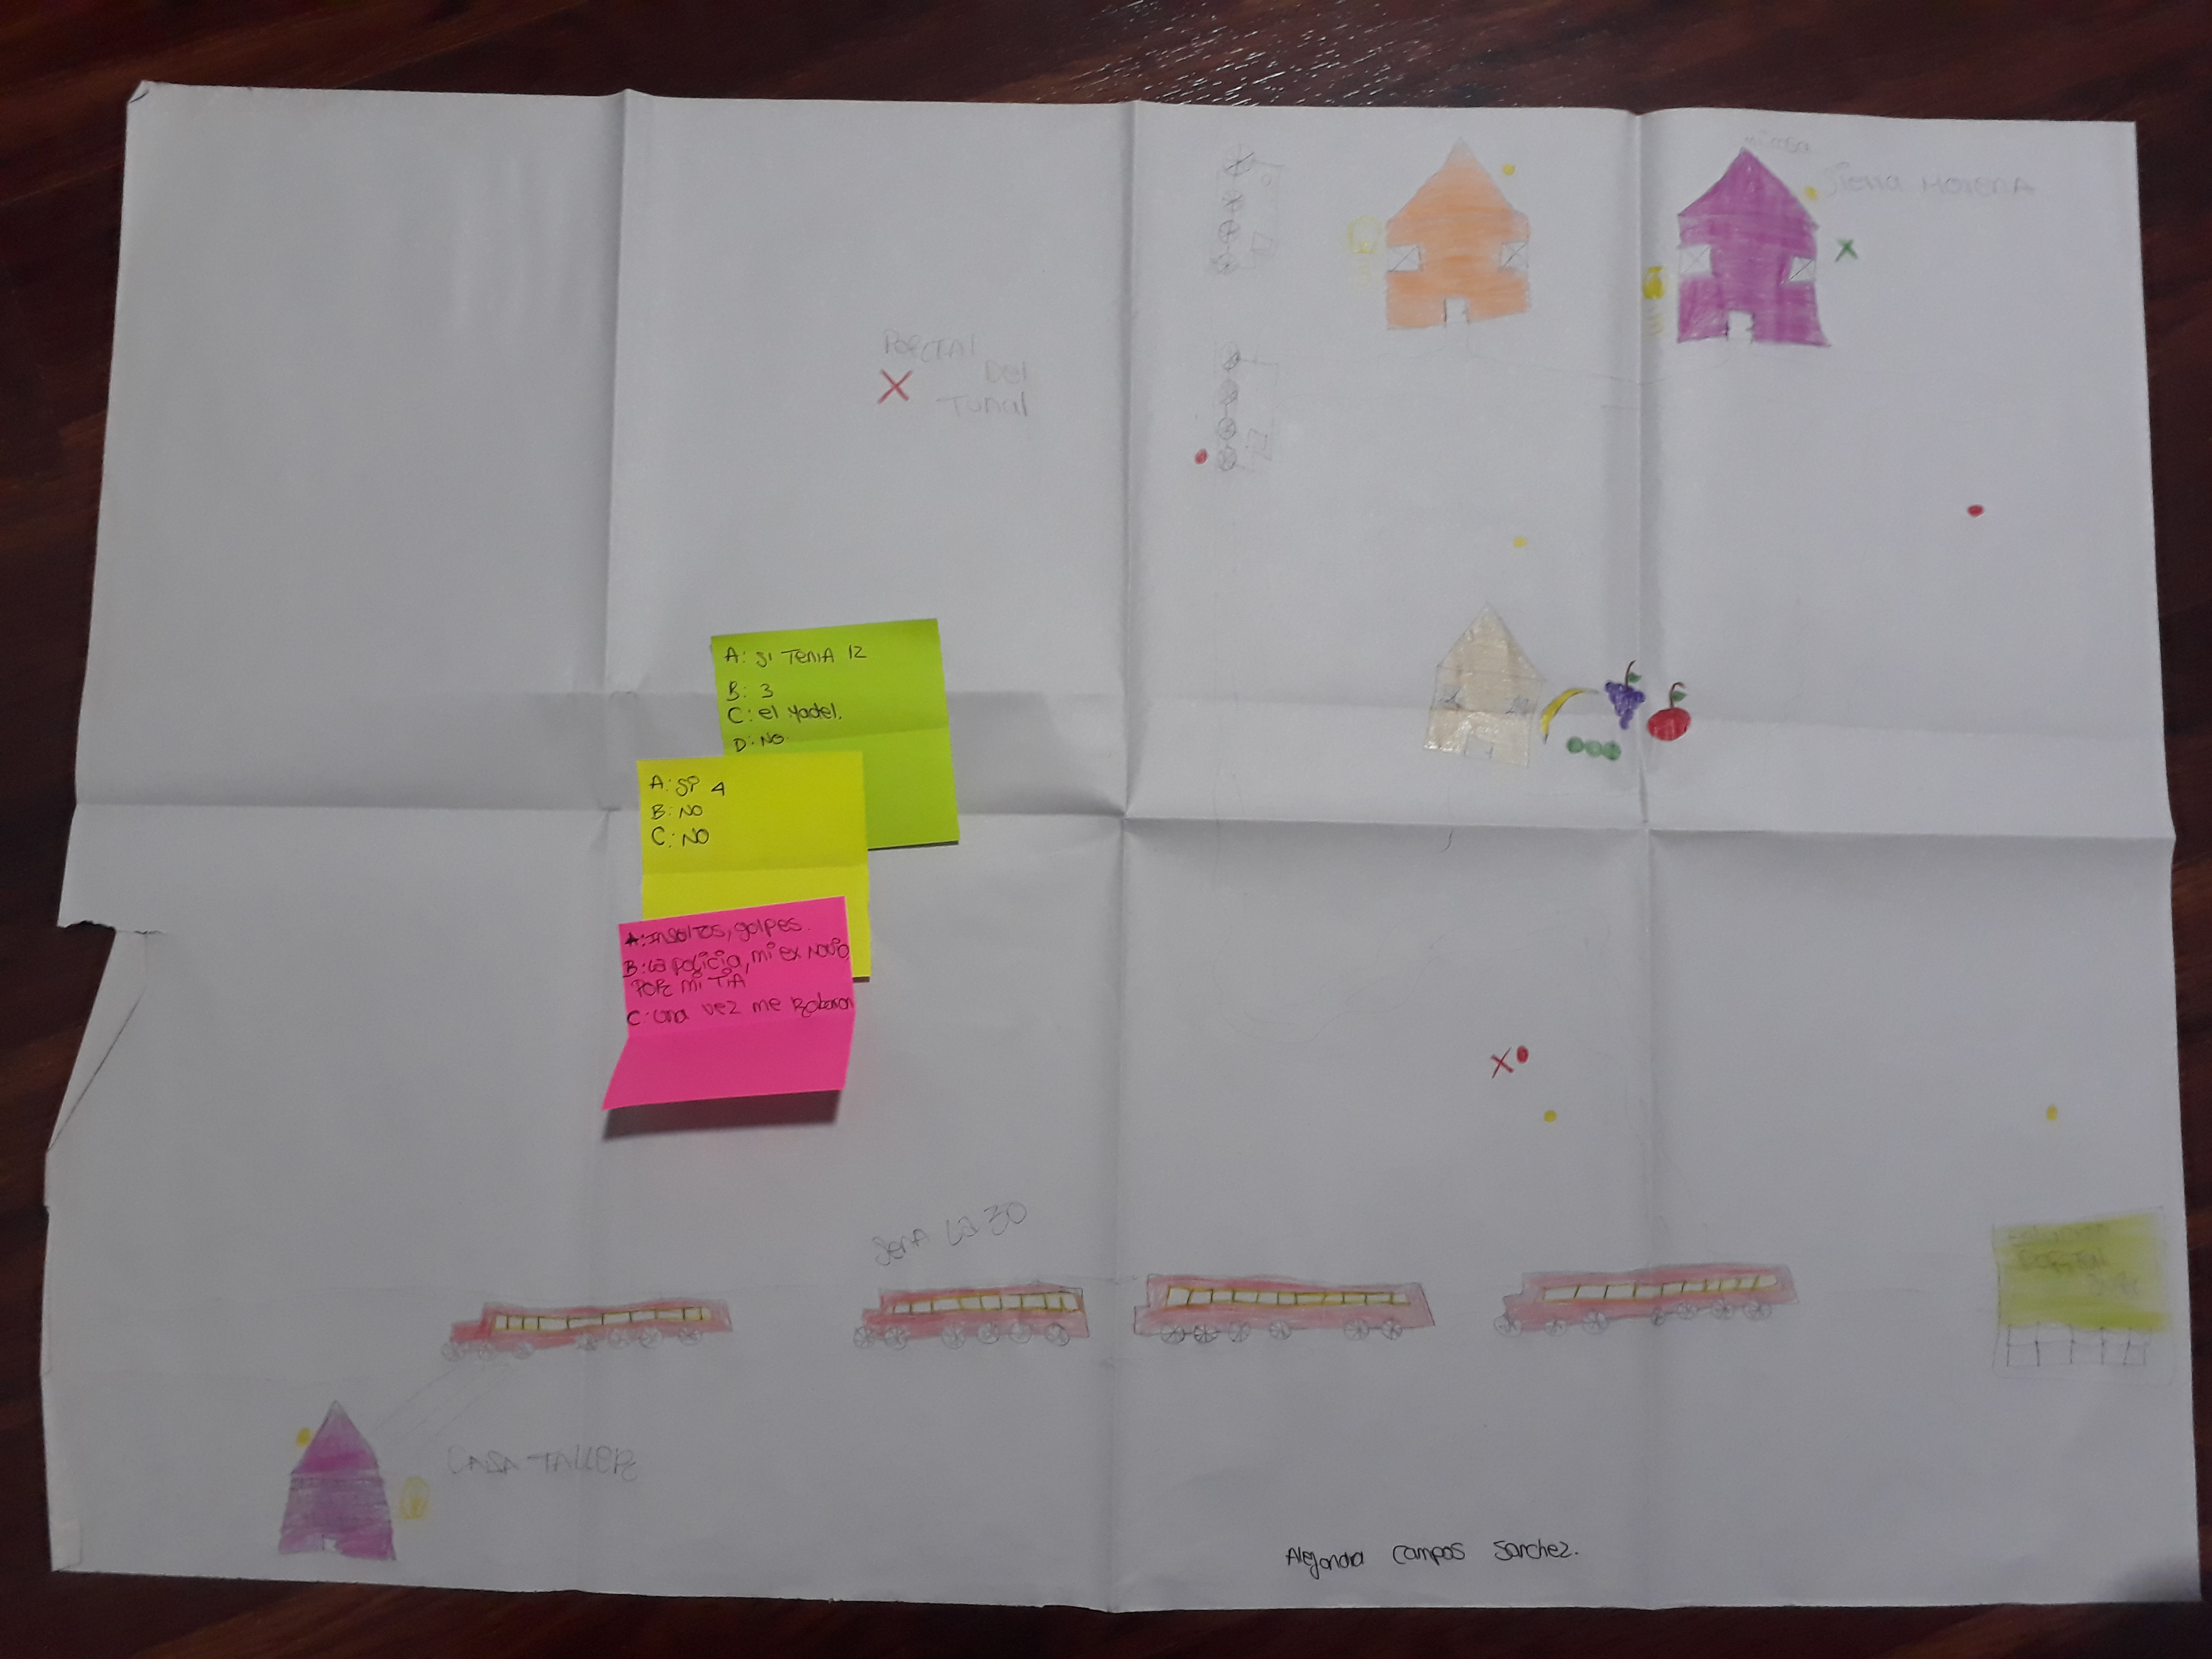 mi casa
Sierra MorenA
PORTAl
Del
Tunal
A: SI TENIA 12
B: 3
C: el Yadel.
D: NO.
A: SP 4
B: NO
C: NO
A: INSOLTOS, golpes.
B: la policia, mi ex novio
POR mi TIA
C: una vez me Robaron
SenA la 30
CASA TALLER
Alejandra Campos Sanchez.